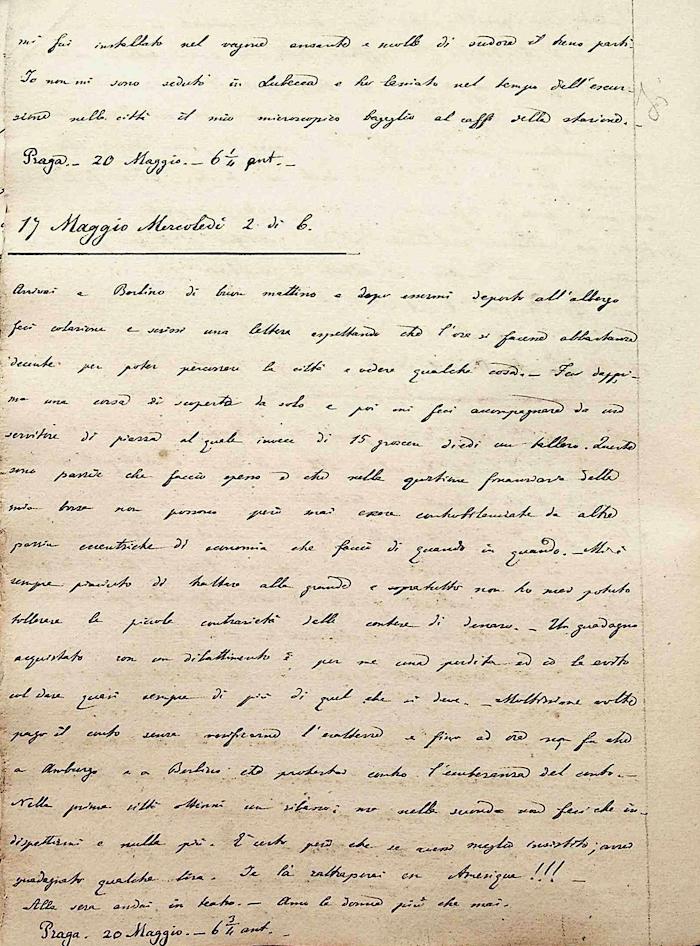 mi fui installato nel vagone ansante e molle di sudore il treno partì.
Io non mi sono seduto in Lubecca e ho lasciato nel tempo dell'escur-
sione nella città il mio microscopico bagaglio al caffè della stazione.
Praga. - 20 Maggio. - 6 1/4 ant. -
17 Maggio Mercoledì 2 di 6.
Arrivai a Berlino di buon mattino e dopo essermi deposto all'albergo
feci colazione e scrissi una lettera aspettando che l'ora si facesse abbastanza
decente per poter percorrere la città e vedere qualche cosa. - Feci dappri-
ma una corsa di scoperta da solo e poi mi feci accompagnare da un
servitore di piazza al quale invece di 15 groscen diedi un tallero. Queste
sono pazzie che faccio spesso e che nella quistione finanziaria della
mia borsa non possono però mai essere controbilanciate da altre
pazzie eccentriche di economia che faccio di quando in quando. - Mi è
sempre piaciuto di trattare alla grande e sopratutto non ho mai potuto
tollerare le piccole contrarietà delle contese di denaro. - Un guadagno
acquistato con un dibattimento è per me una perdita ed io la evito
col dare quasi sempre di più di quel che si deve. - Moltissime volte
pago il conto senza verificarne l'esattezza e fino ad ora non fu che
a Amburgo e a Berlino che protestai contro l'esuberanza del conto. -
Nella prima città ottenni un ribasso; ma nella seconda non feci che in-
dispettirmi e nulla più. È certo però che se avessi meglio insistito, avrei
guadagnato qualche lira. Je la rattraperai en Amerique !!! -
Alla sera andai in teatro. - Amo le donne più che mai.
Praga. 20 Maggio. - 6 3/4 ant. -